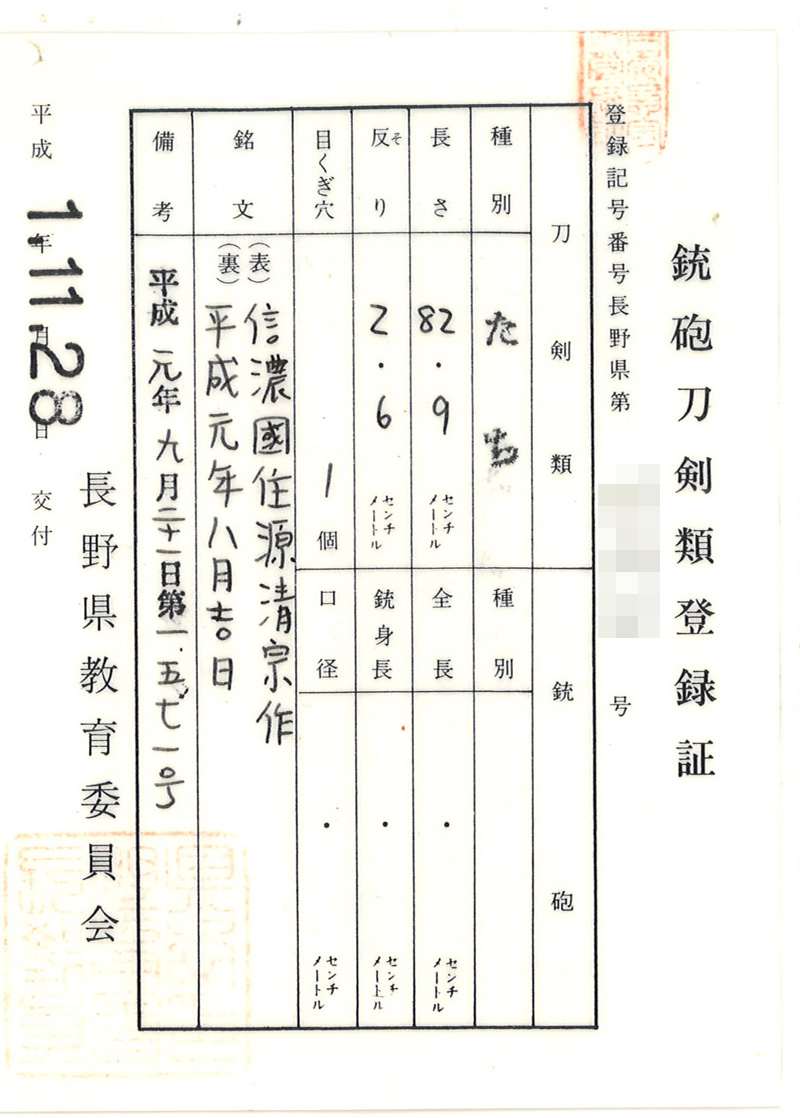 銃砲刀剣類登録証
登録記号番号長野県第 号
刀剣類 銃砲
種別 たち 種別
長さ 82.9 センチメートル 全長 ・ センチメートル
反り そ 2.6 センチメートル 銃身長 ・ センチメートル
目くぎ穴 1 個 口径 ・ センチメートル
銘文 (表) 信濃國住源清宗作
(裏) 平成元年八月吉日
備考 平成元年九月二十一日第一五七一号
長野県教育委員会
平成 1年11月28日 交付